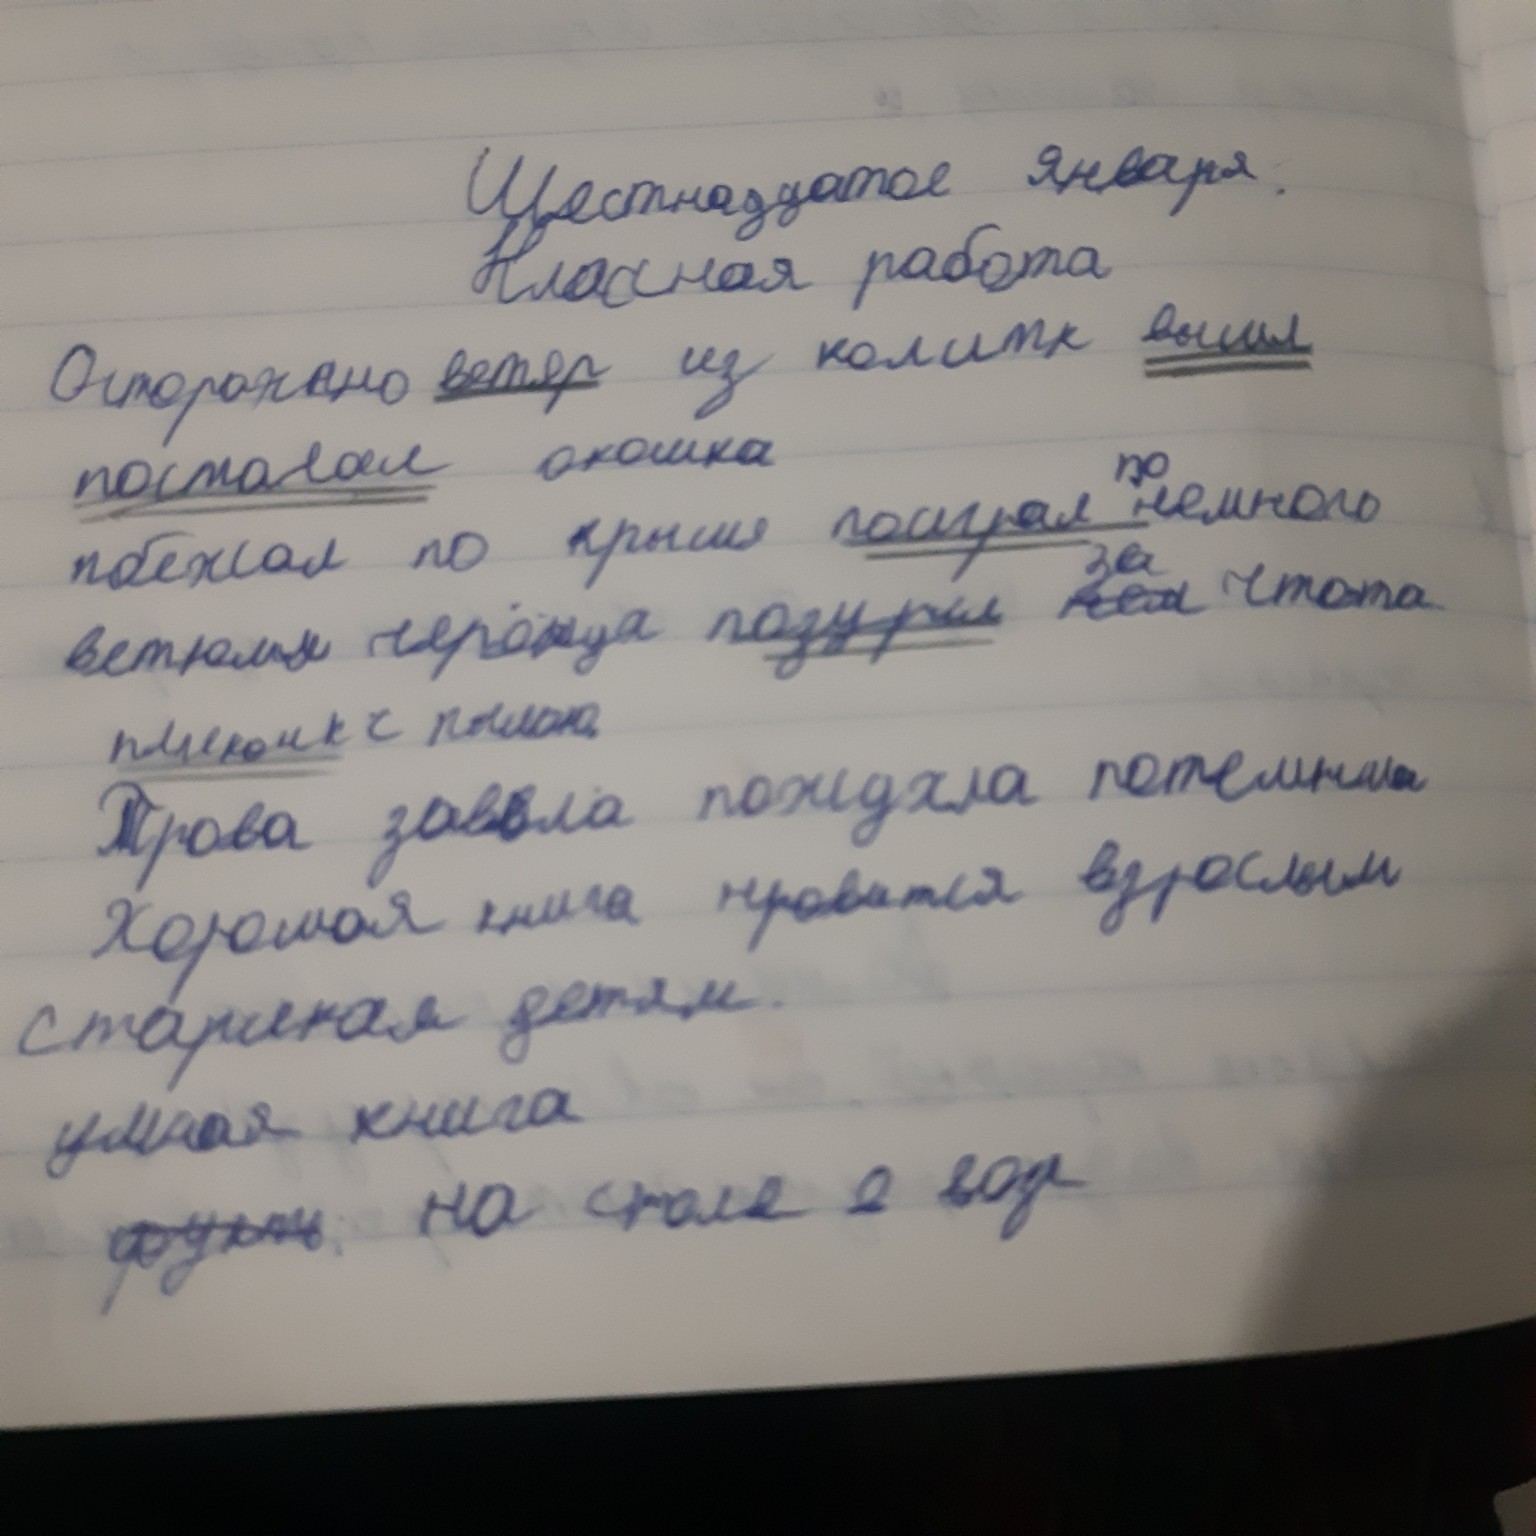 Шестнадцатое января.
Класная работа
Осторожно ветер из калитк вышл
постачал окошка
побежал по крыше поиграл по немного
ветюмя черонца позурил за чтота
с пылою
Трова заввла пождхла потемнила
Хорошая книга нравится взрослым
старикам детям.
умная книга
на столе